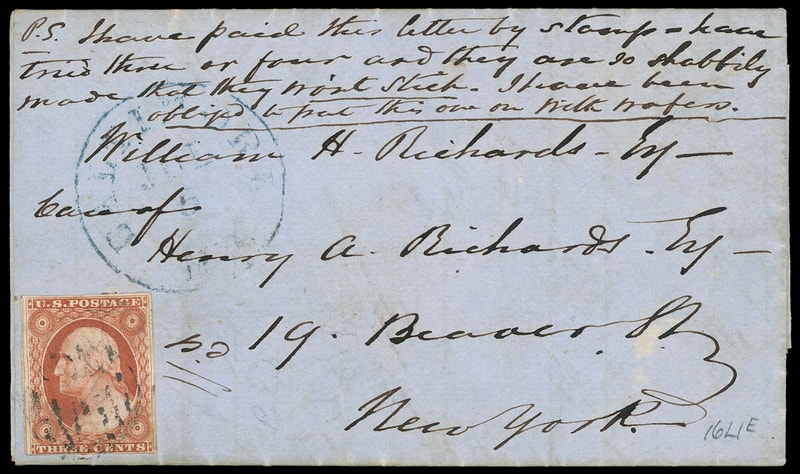 P.S. I have paid this letter by stamp - have
tried three or four and they are so shabbily
made that they won't stick. I have been
oblig'd to put this one on with wafers.
William H. Richards - Esq -
Care of
Henry A. Richards - Esq -
No 19. Beaver. St.
New York.
U.S. POSTAGE
THREE CENTS
16L1E